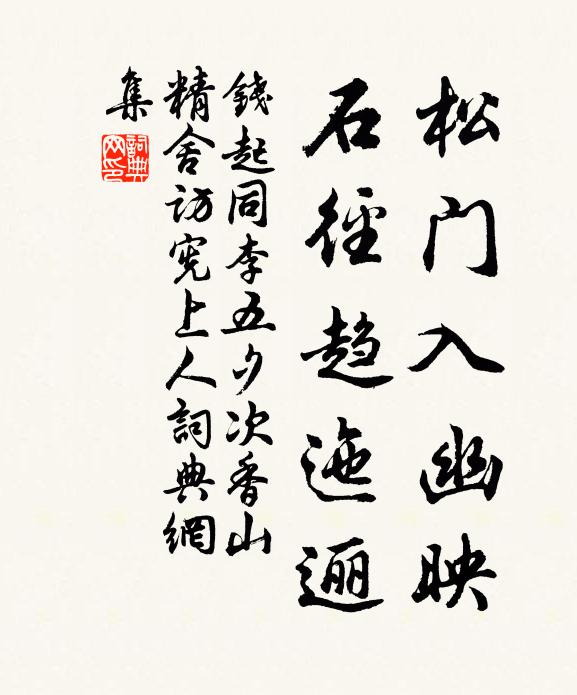 松门入幽映
石徑趨迤逦
錢起同李五夕次香山
精舍访宪上人詞典網
集
詞典
网印